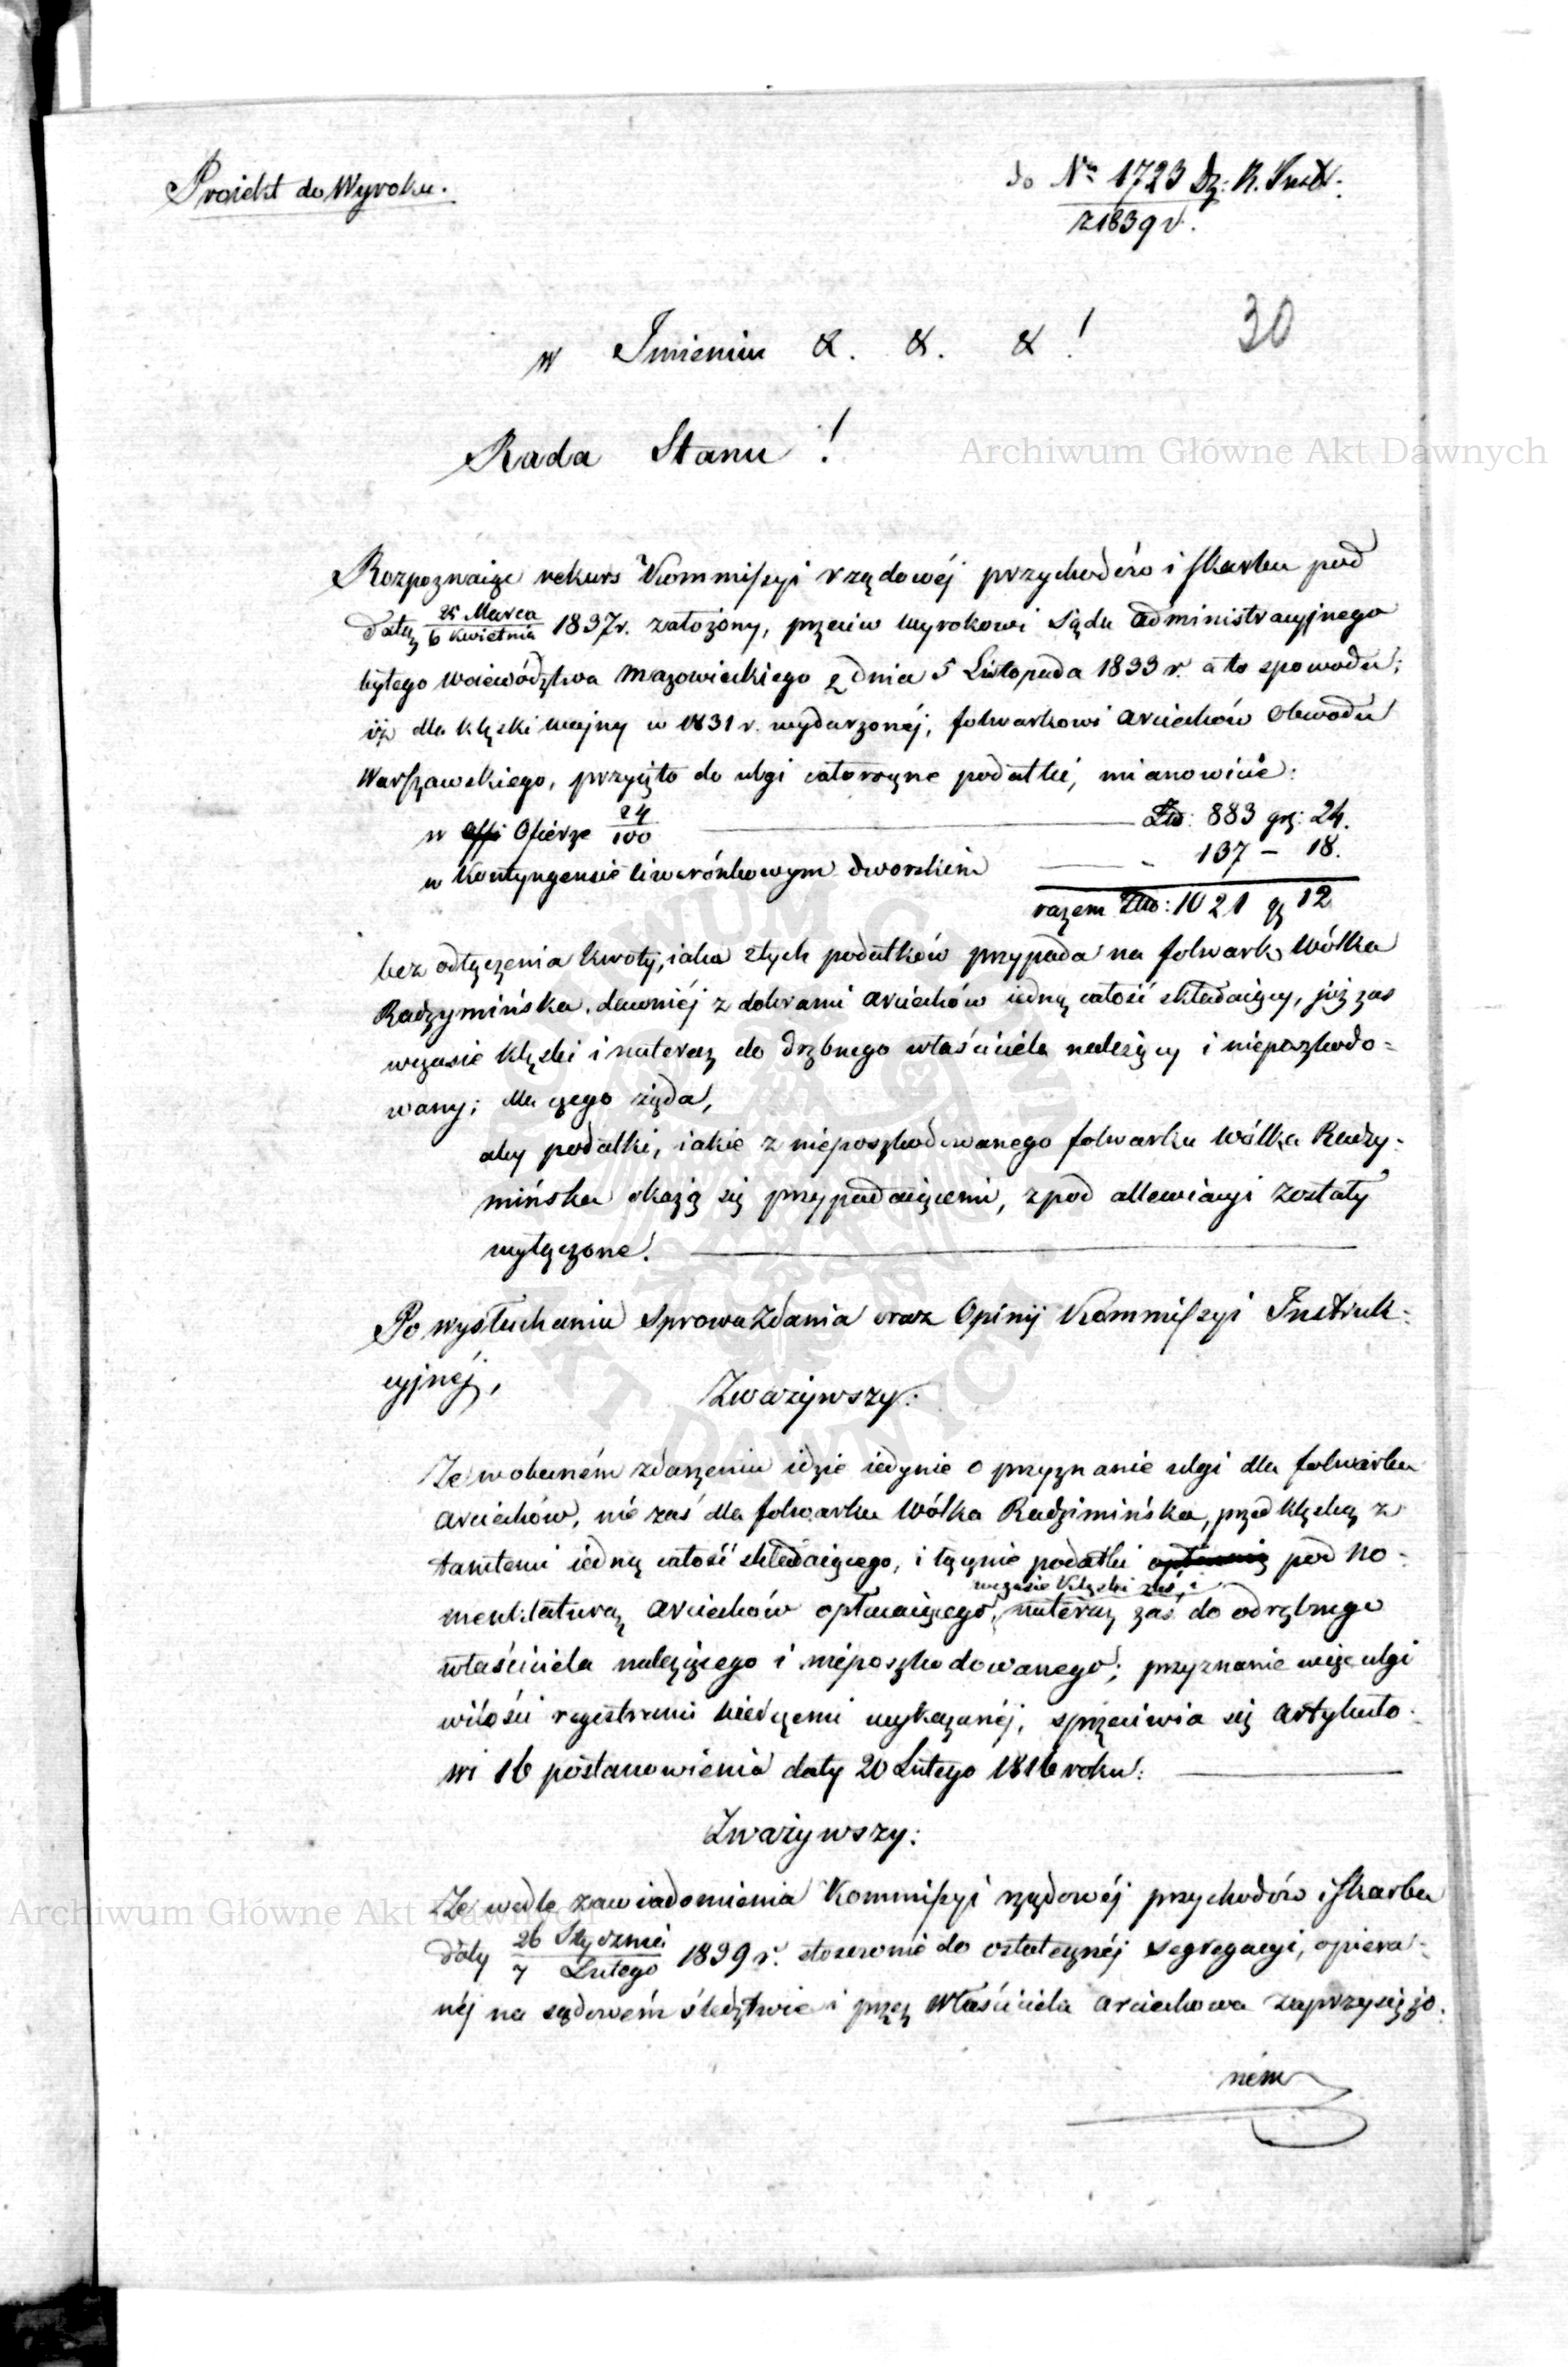 Proiekt do Wyroku.
do Nro 1723 Dz: K. Instr.
z 1839 r.
30
w Imieniu &. &. &!
Rada Stanu!
Archiwum Główne Akt Dawnych
Rozpoznaiąc rekurs Kommissyi rządowéj przychodów i skarbu pod
datą 25 Marca / 6 Kwietnia 1837 r. założony, przeciw wyrokowi Sądu administracyjnego
byłego woiewództwa mazowieckiego z dnia 5 Listopada 1833 r. a to z powodu;
iż dla klęski wojny w 1831 r. wydarzonéj, folwarkowi arciechów obwodu
Warszawskiego, przyięto do ulgi całoroczne podatki, mianowicie:
w Offi Ofierze 24/100 Złp: 883 gr: 24.
w Kontyngensie liwerónkowym dworskim 137 – 18.
razem Złp: 1021 gr 12
bez odłączenia kwoty, iaka z tych podatków przypada na folwark Wólka
Radzymińska, dawniéj z dobrami arciechów iedną całość składaiący, już zas
w czasie klęski i nateraz do odrębnego właściciela należący i nieposzkodo-
wany; dla czego żąda,
aby podatki, iakie z nieposzkodowanego folwarku Wólka Radzy-
mińska okażą się przypadaiącemi, z pod allewiacyi zostały
wyłączone.
Po wysłuchaniu sprawozdania oraz Opinij Kommissyi Instruk-
cyjnéj,
Zważywszy:
Że w obecném zdarzeniu idzie iedynie o przyznanie ulgi dla folwarku
arciechów, nie zaś dla folwarku Wólka Radzimińska, przed klęską z
tamtemi iedną całość składaiącego, i łącznie podatki pod no-
menklaturą arciechów opłacaiącego, w czasie klęski zaś i nateraz zaś do odrębnego
właściciela należącego i nieposzkodowanego; przyznanie więc ulgi
w ilości regestrami bieżącemi wykazanéj, sprzeciwia się artykuło-
wi 16 postanowienia daty 20 Lutego 1816 roku.
Zważywszy:
Że wedle zawiadomienia Kommissyi rządowéj przychodów i skarbu
Archiwum Główne Akt Dawnych
daty 26 Stycznia / 7 Lutego 1839 r. stosownie do ostatecznéj segregacyi, opiera-
néj na sądowém śledztwie i przez właściciela arciechowa zaprzysiężo-
ném